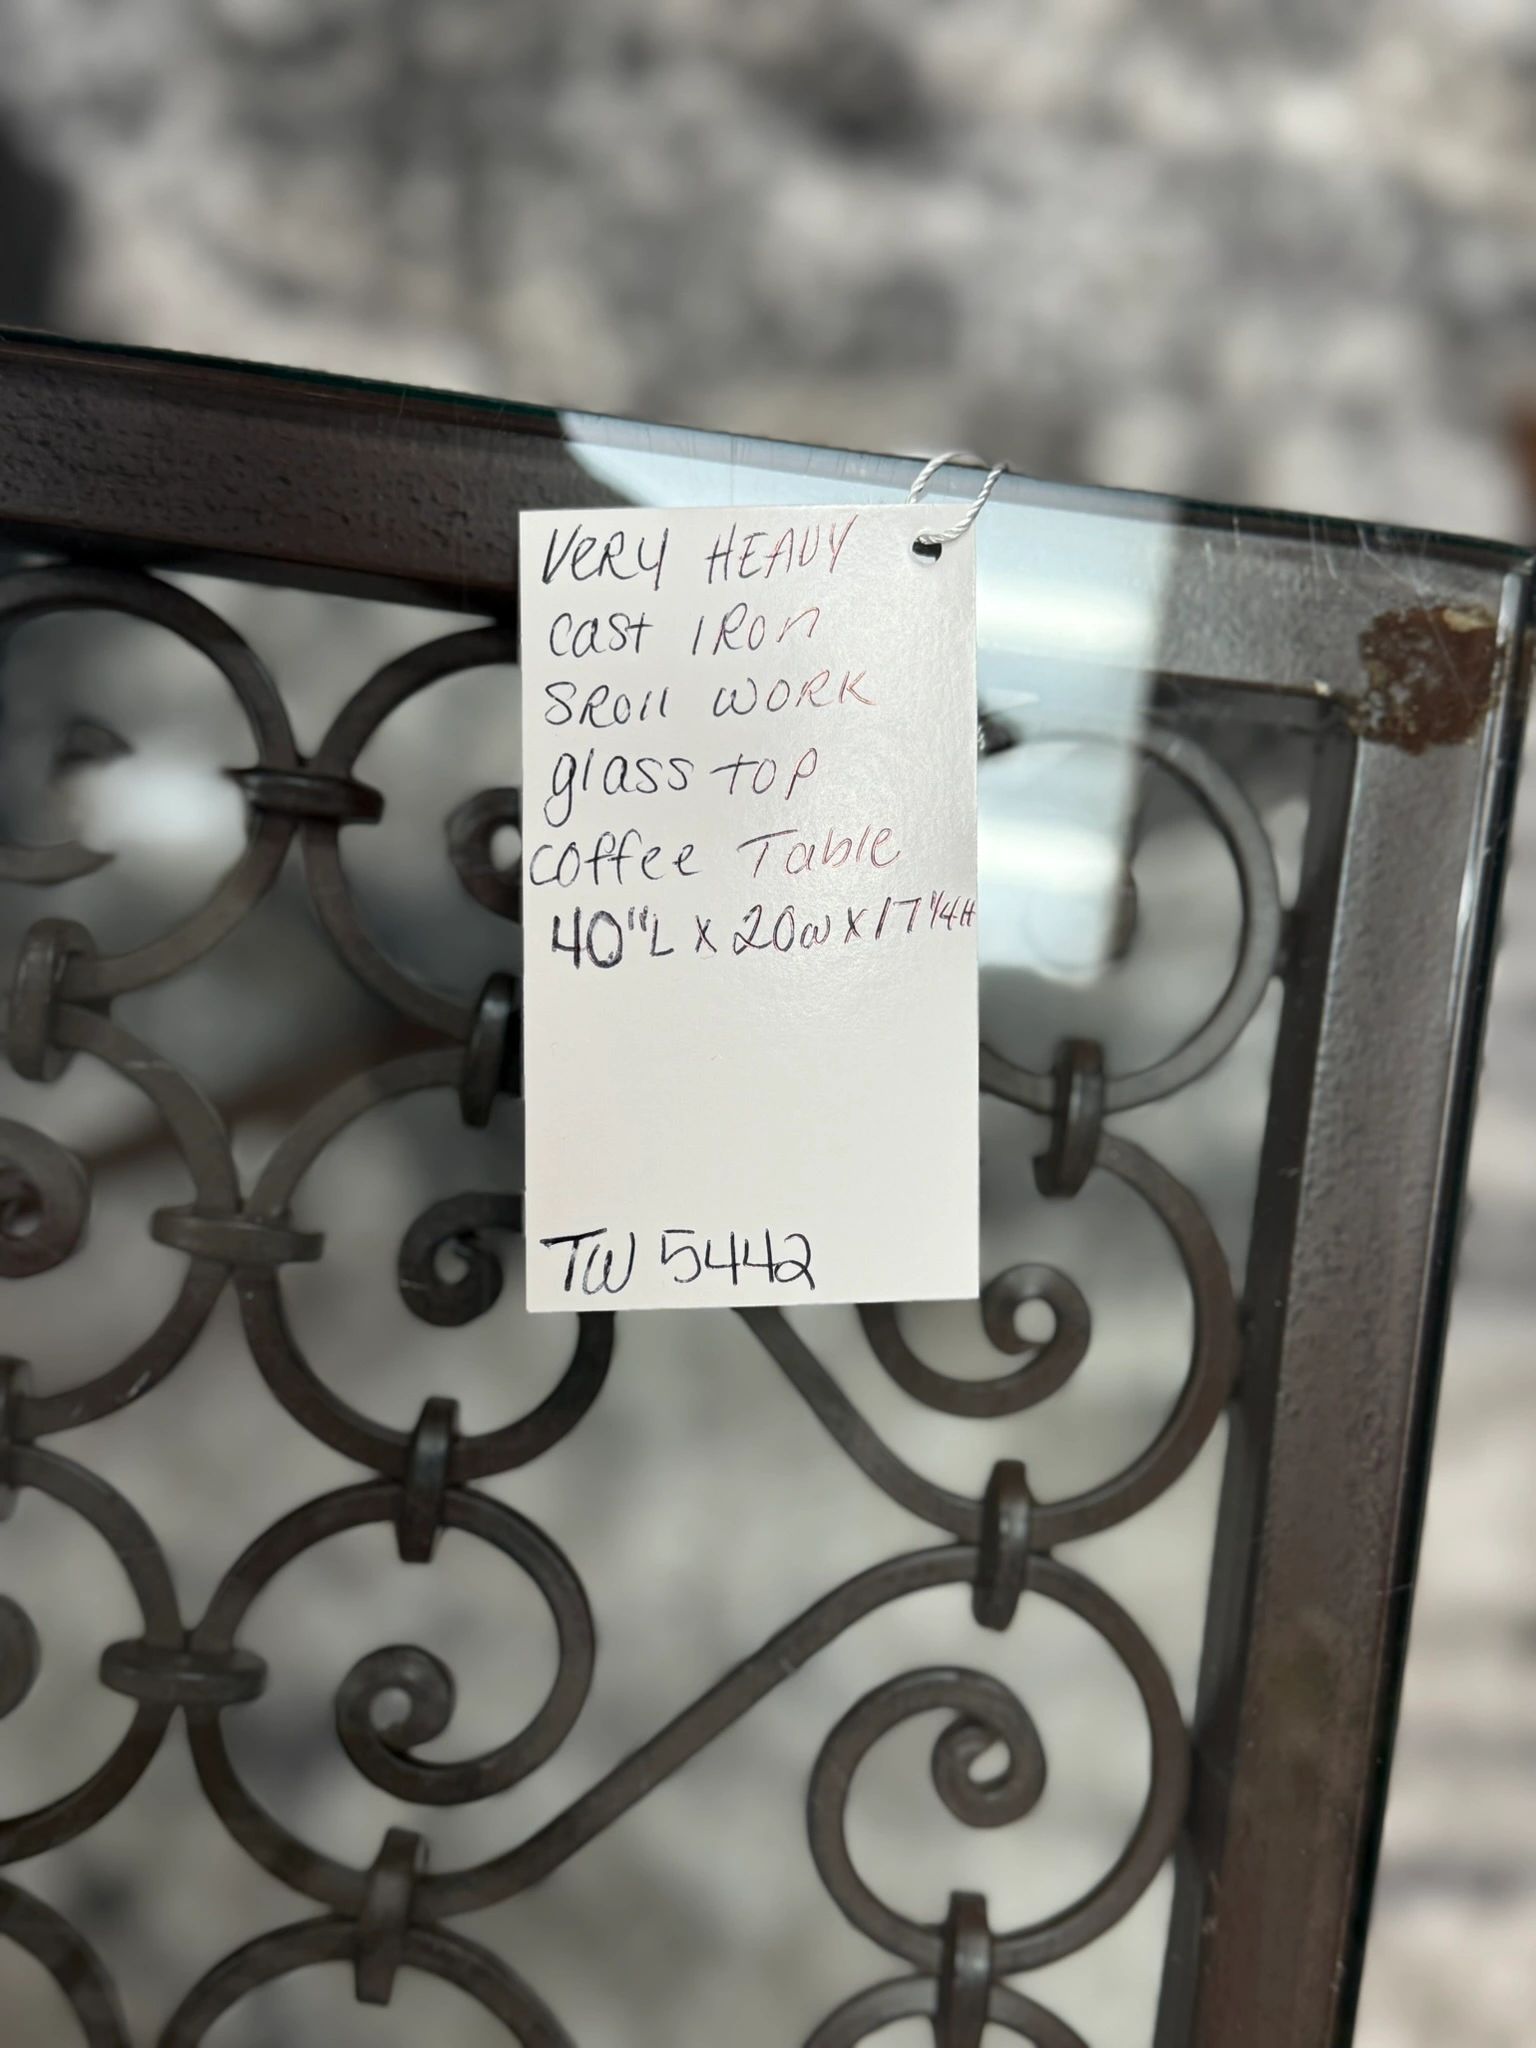 VERY HEAVY
cast IRon
SRoll WORK
glass top
coffee Table
40"L x 20w x 17 1/4H
TW 5442